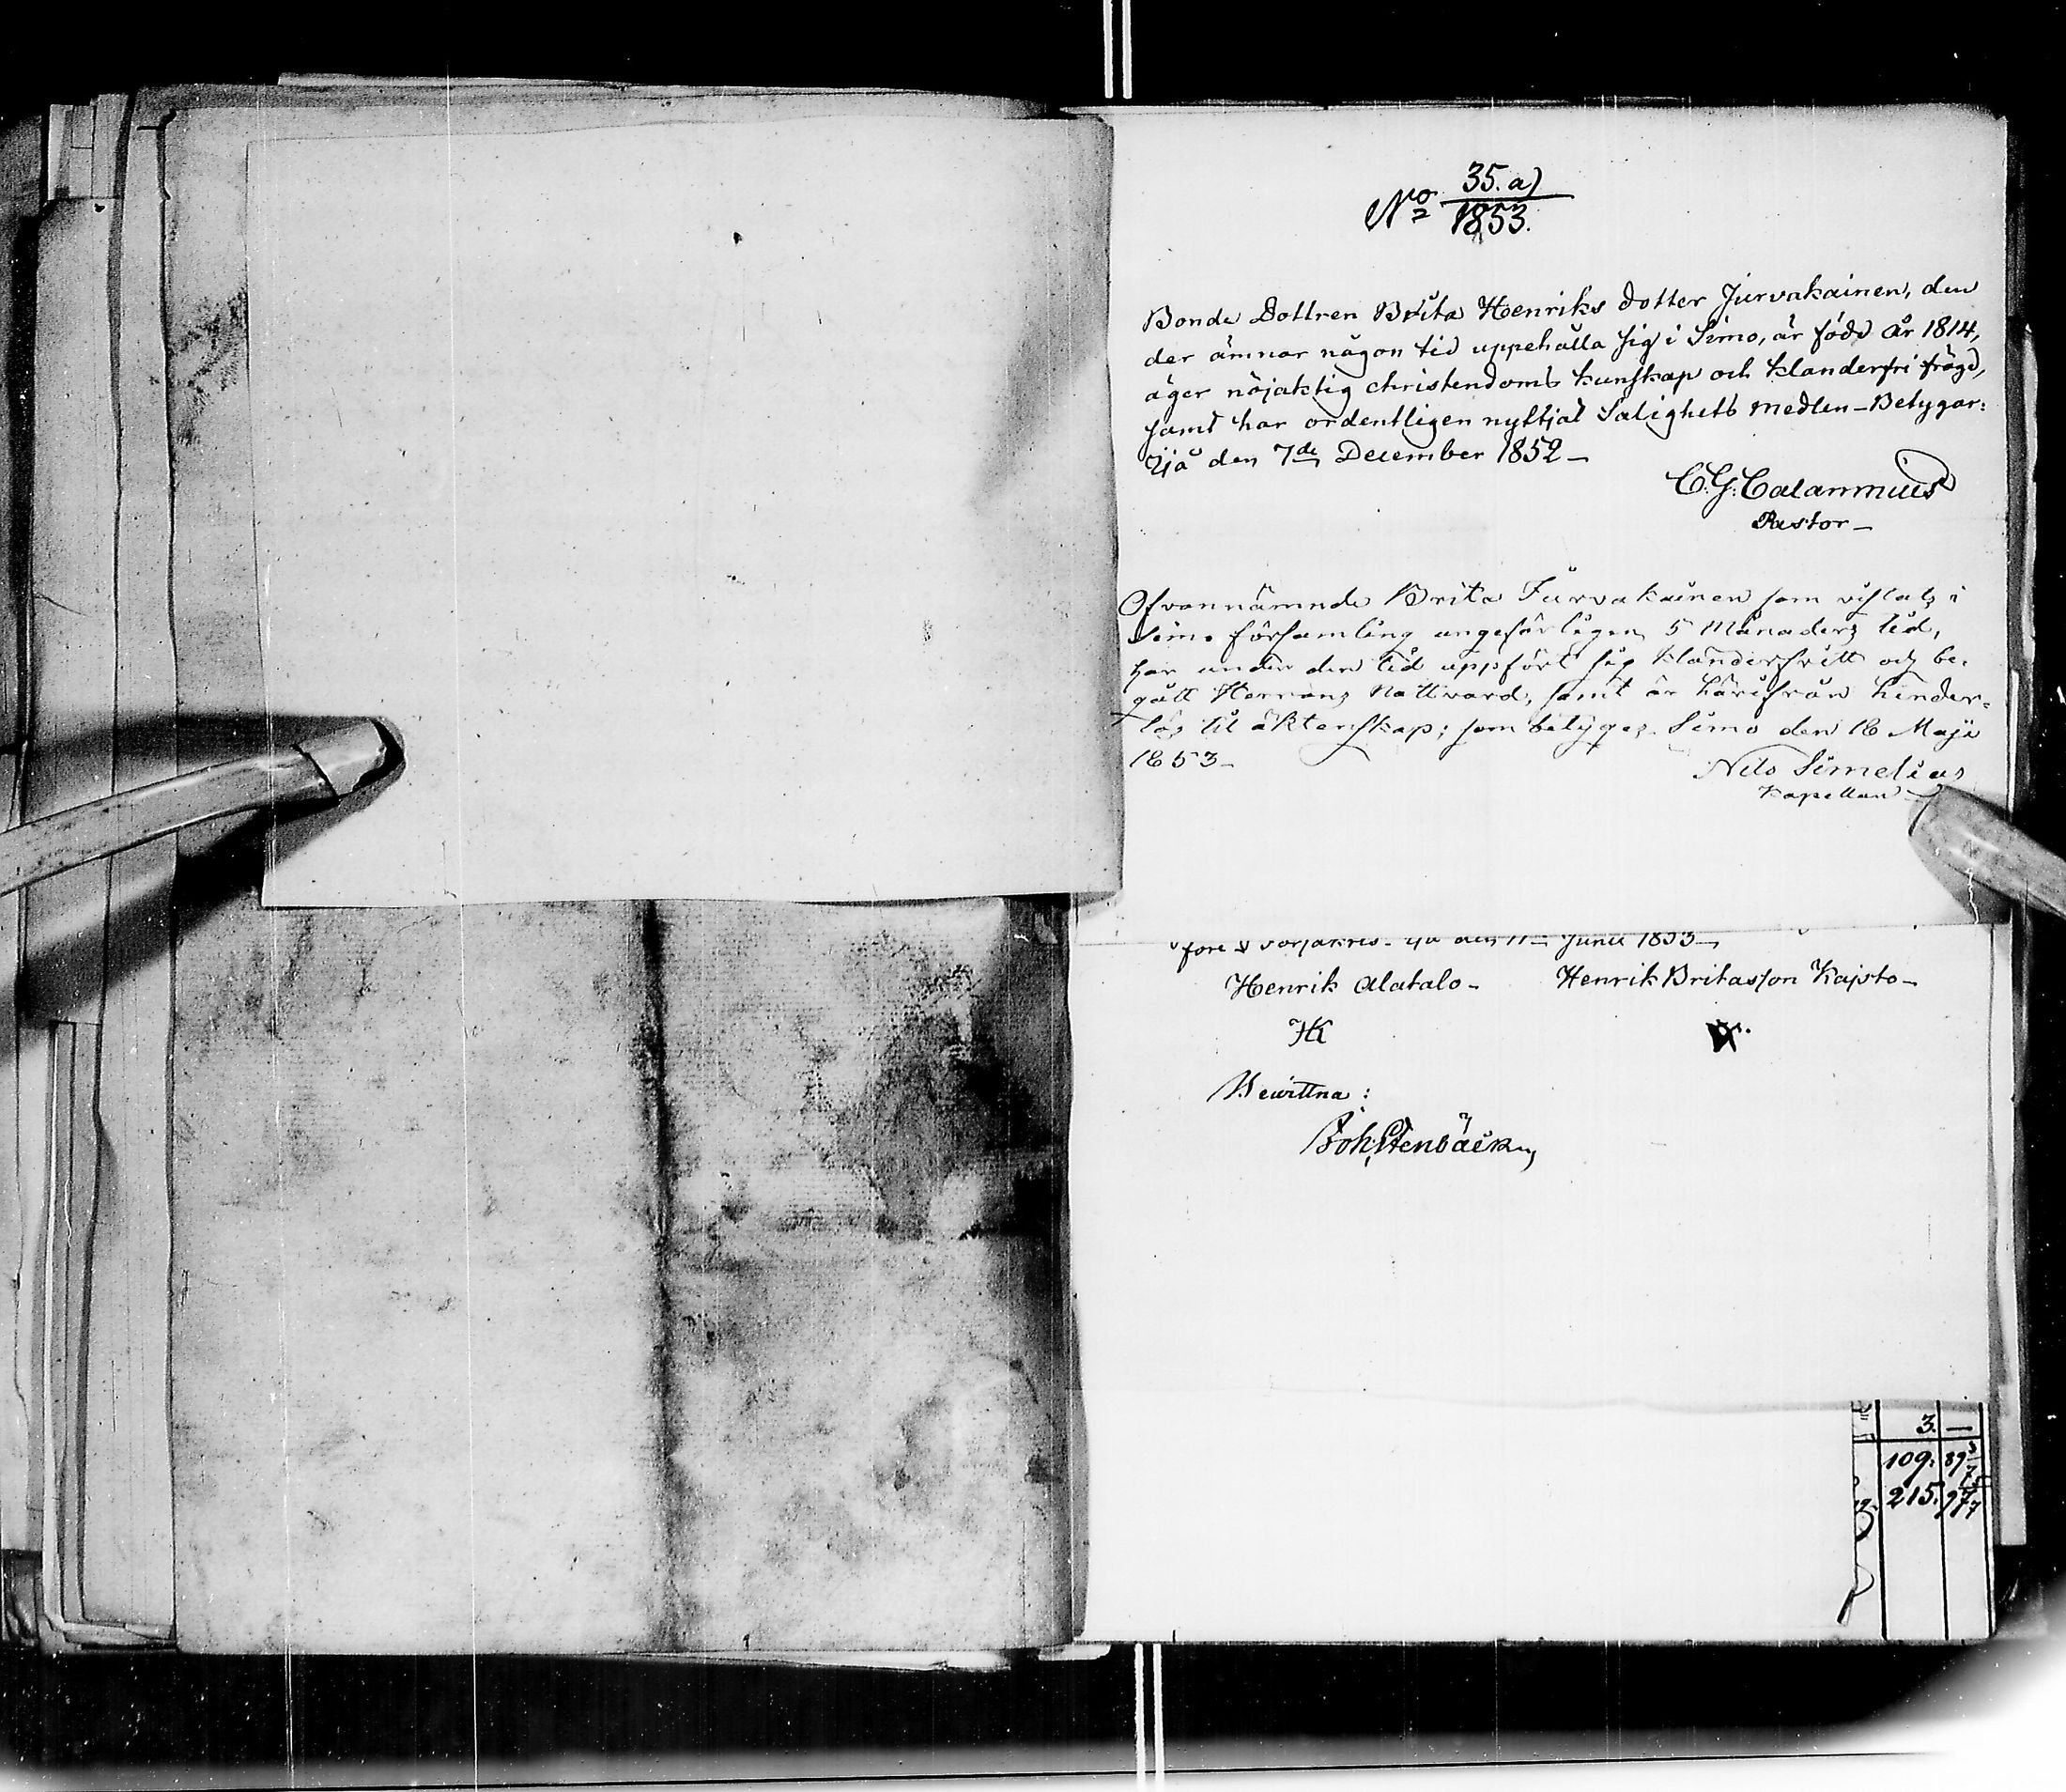 No 35. a)
1853.
Bonde Dottren Brita Henriks dotter Jurvakainen, den
der ämnar någon tid uppehålla sig i Simo, är född år 1814,
äger nöjaktig christendoms kunskap och klanderfri frägd,
samt har ordentligen nyttjat Salighets medlen - Betygar:
Ijå den 7de December 1852 -
C. G. Calamnius
Pastor -
Ofvannämnde Brita Jurvakainen som vistats i
Simo församling ungefärligen 5 Månaders tid,
har under den tid uppfört sig klanderfritt och be-
gått Herrans Nattvard, samt är härifrån hinder-
lös til äktenskap; som betygas. Simo den 16 Maji
1853 -
Nils Simelius
Kapellan
Junii 1853 -
Henrik Alatalo - Henrik Britasson Kajsto -
HK
Bewittna:
Joh. Stenbäck
3. -
109. 89 3/7
215.